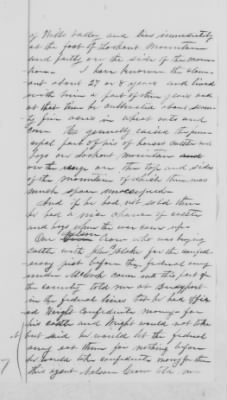 of Wills Valley and lies immediately
at the foot of Lookout Mountain
and partly on the side of the moun-
tain. I have known the claim-
ant about 27 or 8 years and lived
with him a part of the years and
at that time he cultivated about seven-
ty five acres in wheat oats and
corn He generally raised the prin-
cipal part of his of horses cattle and
hogs on Lookout mountain and
on the top and sides
of the mountain of which there was
much space unoccupied.
And if he had not sold them
he had a nice chance of cattle
and hogs when the war came up.
One Nelson Crow who was buying
cattle with for the confed
army just before the federal army
under McCook came into this part of
the country told me at Bridgeport
in the federal lines that he had offer-
ed Wright Confederate money for
his cattle and Wright would not take
it but said he would let the federal
army eat them for nothing before
he would take confederate money for them
this agent Nelson Crow
7